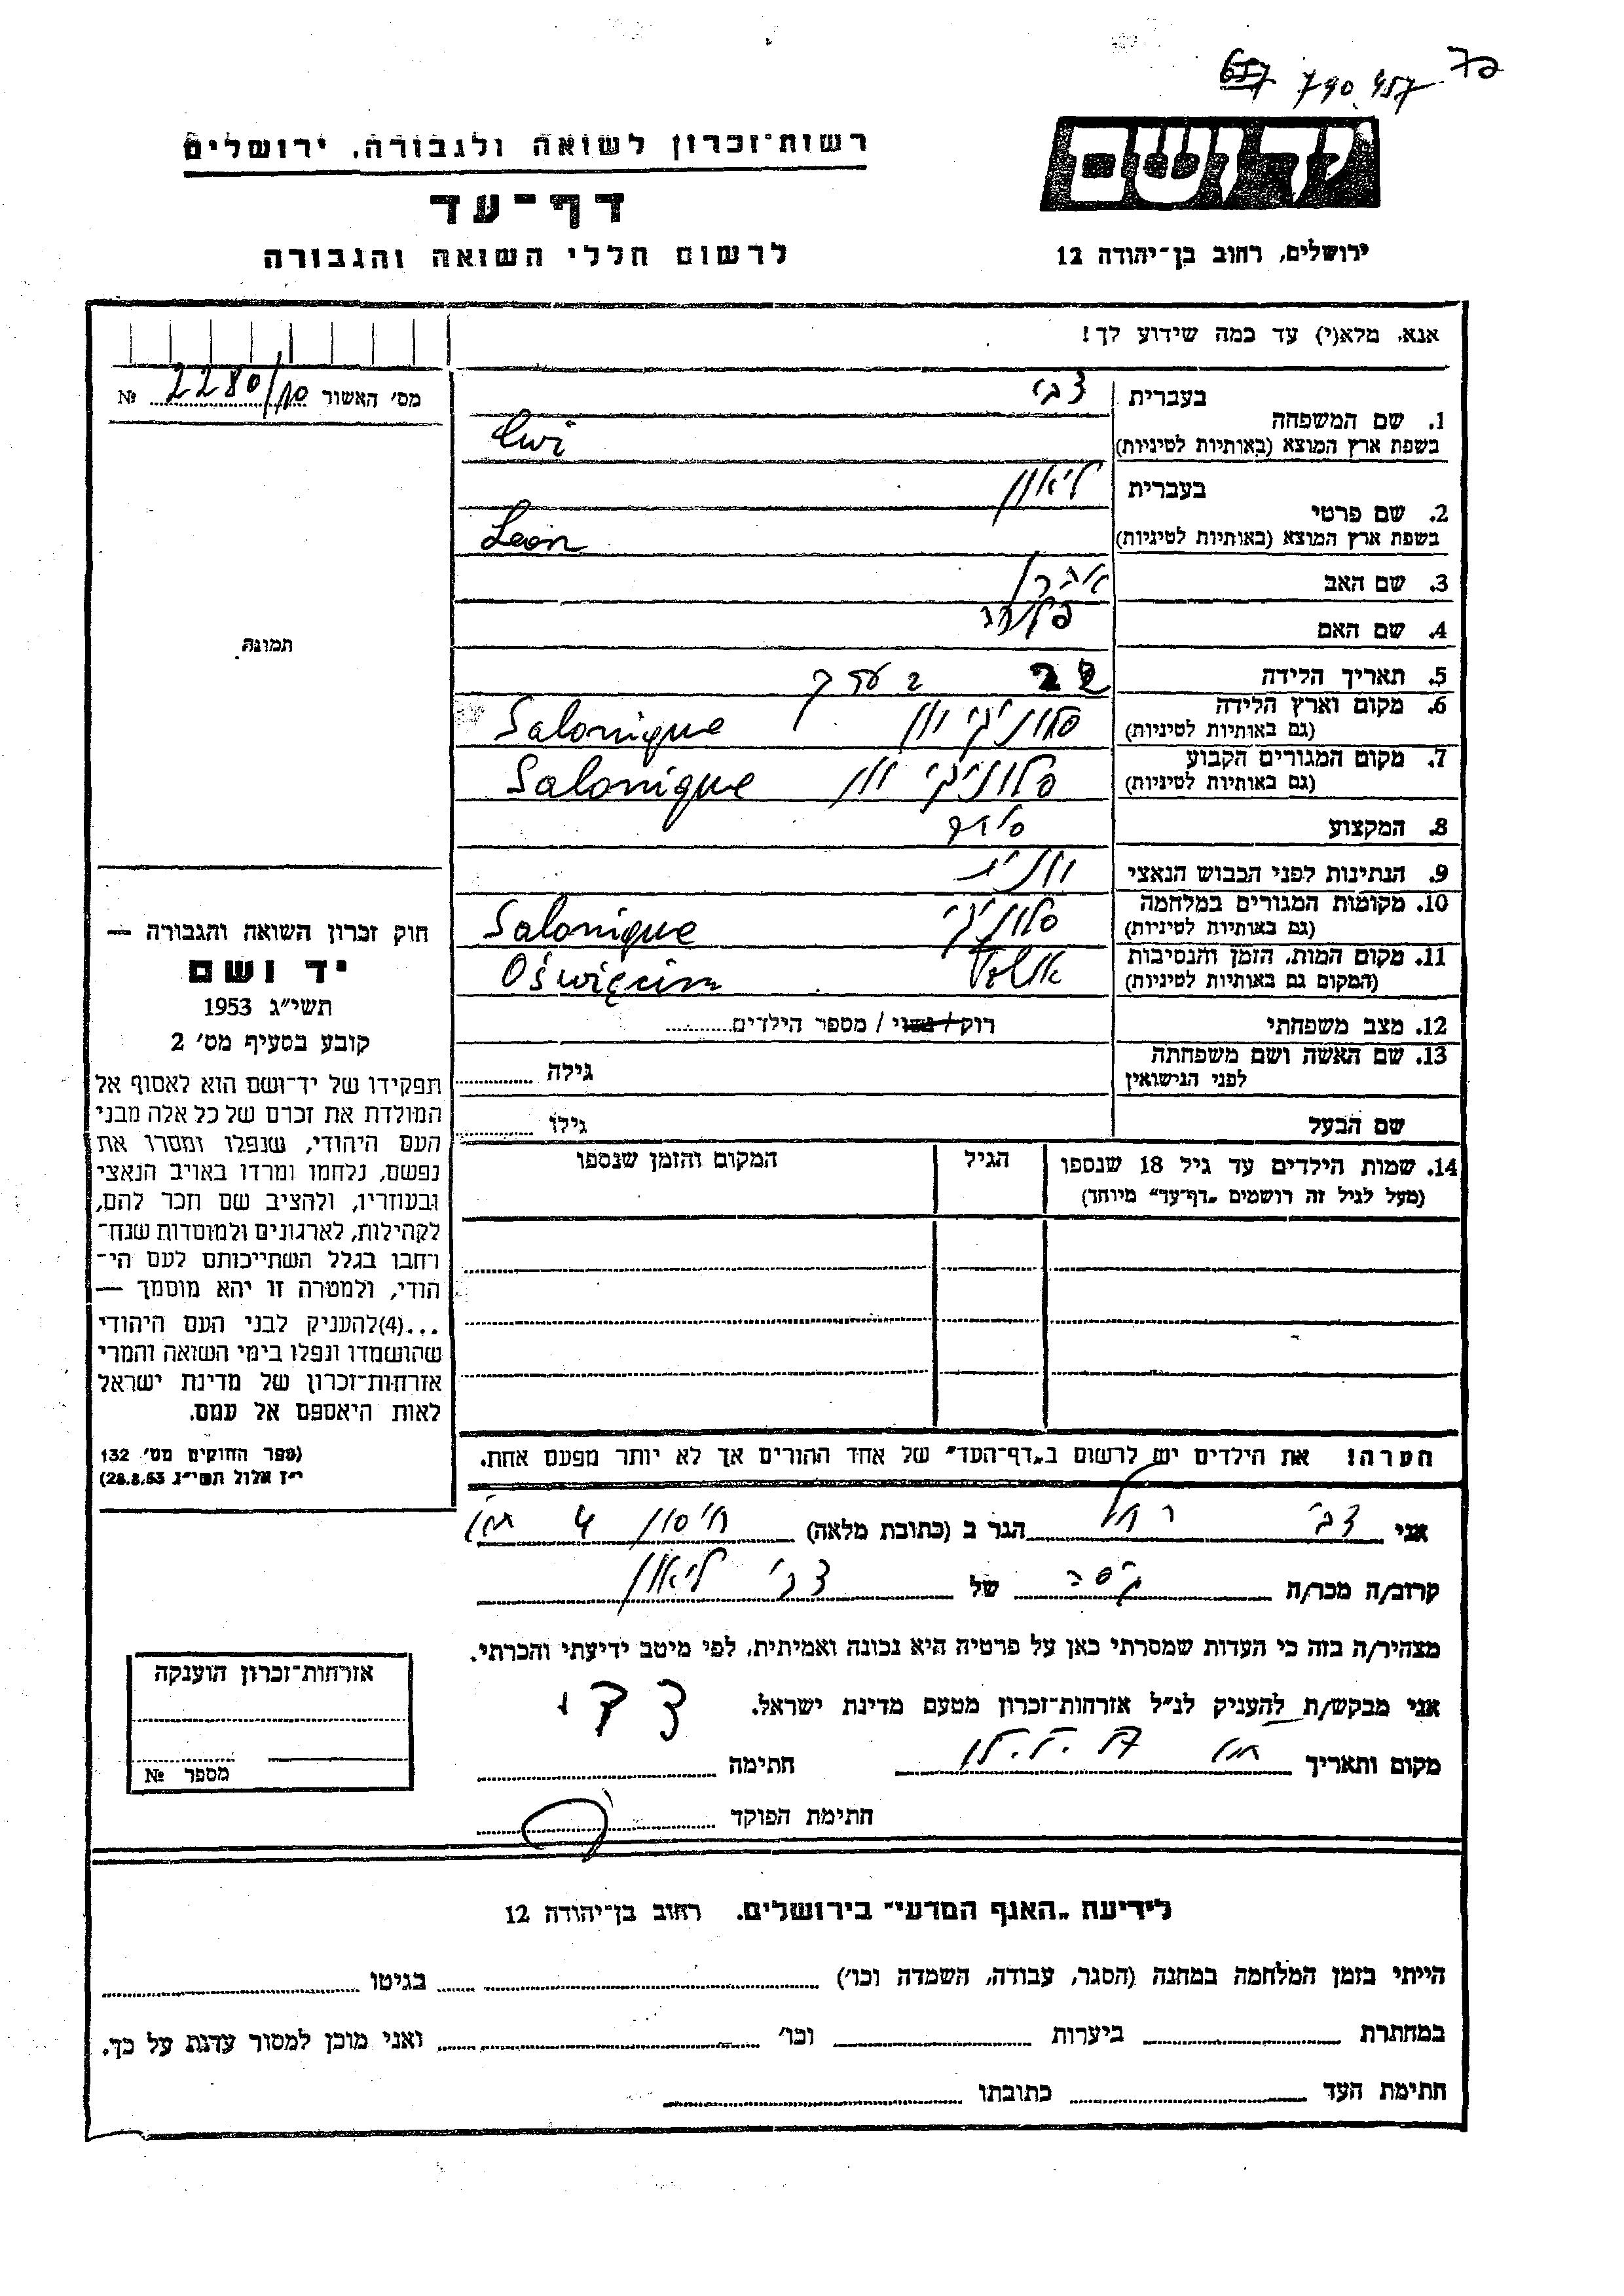 790 457
יד ושם
רשות־זכרון לשואה ולגבורה, ירושלים
דף־עד
לרשום חללי השואה והגבורה
ירושלים, רחוב בן־יהודה 12
אנא, מלא(י) עד כמה שידוע לך!
מס׳ האשור 2280/10 №
תמונה
1. שם המשפחה
בעברית צבי
בשפת ארץ המוצא (באותיות לטיניות) Cwi
2. שם פרטי
בעברית ליאון
בשפת ארץ המוצא (באותיות לטיניות) Leon
3. שם האב
4. שם האם
5. תאריך הלידה 22
6. מקום וארץ הלידה סלוניקי יון Salonique
(גם באותיות לטיניות)
7. מקום המגורים הקבוע סלוניקי יון Salonique
(גם באותיות לטיניות)
8. המקצוע
9. הנתינות לפני הכבוש הנאצי
10. מקומות המגורים במלחמה סלוניקי Salonique
(גם באותיות לטיניות)
11. מקום המות, הזמן והנסיבות Oświęcim
(המקום גם באותיות לטיניות)
12. מצב משפחתי רוק/נשוי/ מספר הילדים
13. שם האשה ושם משפחתה
לפני הנישואין
גילה
שם הבעל
גילו
14. שמות הילדים עד גיל 18 שנספו
(מעל לגיל זה רושמים „דף־עד״ מיוחד)
הגיל
המקום והזמן שנספו
הערה! את הילדים יש לרשום ב„דף־העד״ של אחד ההורים אך לא יותר מפעם אחת.
חוק זכרון השואה והגבורה —
יד ושם
תשי״ג 1953
קובע בסעיף מס׳ 2
תפקידו של יד־ושם הוא לאסוף אל
המולדת את זכרם של כל אלה מבני
העם היהודי, שנפלו ומסרו את
נפשם, נלחמו ומרדו באויב הנאצי
ובעוזריו, ולהציב שם וזכר להם,
לקהילות, לארגונים ולמוסדות שנח־
רחבו בגלל השתייכותם לעם הי־
הודי, ולמטרה זו יהא מוסמך —
...(4)להעניק לבני העם היהודי
שהושמדו ונפלו בימי השואה והמרי
אזרחות־זכרון של מדינת ישראל
לאות היאספם אל עמם.
(ספר החוקים מס׳ 132
י״ז אלול תשי״ג 28.8.53)
אני צבי רחל הגר ב (כתובת מלאה)
קרוב/ה מכר/ה גיסה של צבי ליאון
מצהיר/ה בזה כי העדות שמסרתי כאן על פרטיה היא נכונה ואמיתית, לפי מיטב ידיעתי והכרתי.
אני מבקש/ת להעניק לנ״ל אזרחות־זכרון מטעם מדינת ישראל.
מקום ותאריך
חתימה
חתימת הפוקד
אזרחות־זכרון הוענקה
מספר №
לידיעת „האגף המדעי״ בירושלים, רחוב בן־יהודה 12
הייתי בזמן המלחמה במחנה (הסגר, עבודה, השמדה וכו׳) בגיטו
במחתרת ביערות וכו׳ ואני מוכן למסור עדות על כך.
חתימת העד כתובתו